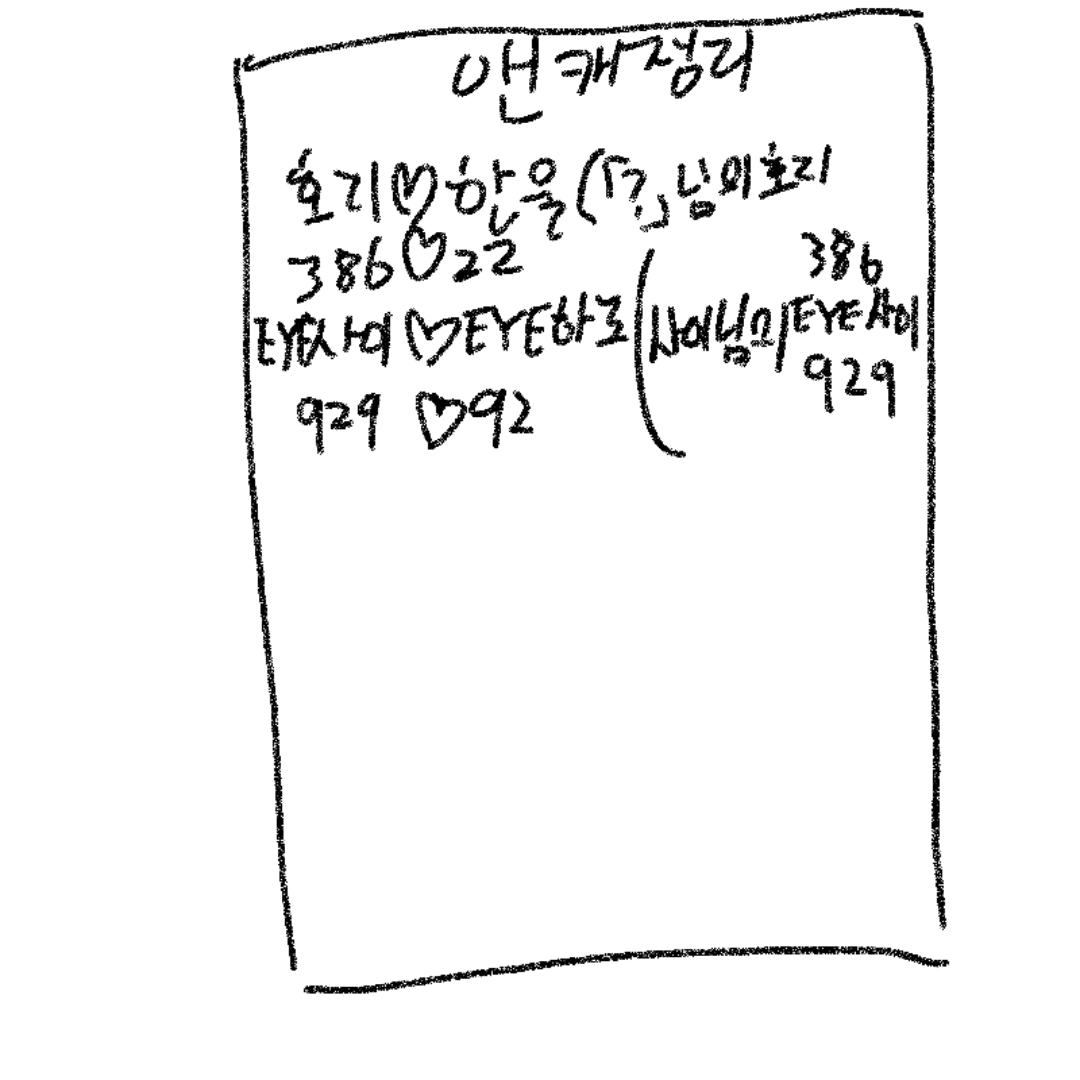 앤캐정리
호리♡한울(「?」님의호리
386♡22 386
EYE사이♡EYE하로(사이님의EYE사이
929♡92 929